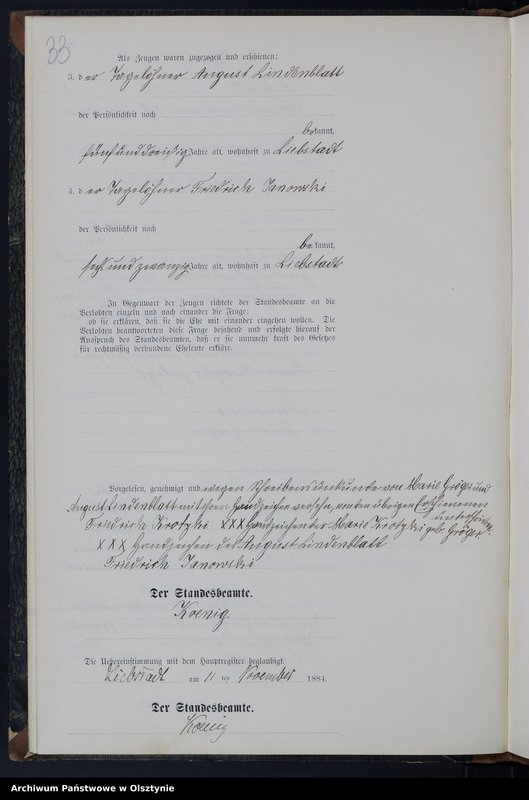 33
Als Zeugen waren zugezogen und erschienen:
3. der Tagelöhner August Lindenblatt
der Persönlichkeit nach
bekannt,
fünfunddreißig Jahre alt, wohnhaft zu Liebstadt
4. der Tagelöhner Friedrich Janowski
der Persönlichkeit nach
bekannt,
sechsundzwanzig Jahre alt, wohnhaft zu Liebstadt
In Gegenwart der Zeugen richtete der Standesbeamte an die
Verlobten einzeln und nach einander die Frage:
ob sie erklären, daß sie die Ehe mit einander eingehen wollen. Die
Verlobten beantworteten diese Frage bejahend und erfolgte hierauf der
Ausspruch des Standesbeamten, daß er sie nunmehr kraft des Gesetzes
für rechtmäßig verbundene Eheleute erkläre.
Vorgelesen, genehmigt und wegen Schreibensunkunde von Marie Gröger und
August Lindenblatt mit ihren Handzeichen versehn, von den übrigen Erschienenen
unterschrieben.
Friedrich Krotzki XXX Handzeichen der Marie Krotzki geb. Gröger
XXX Handzeichen des August Lindenblatt
Friedrich Janowski
Der Standesbeamte.
Koenig.
Die Uebereinstimmung mit dem Hauptregister beglaubigt.
Liebstadt am 11 ten November 1884.
Der Standesbeamte.
Koenig
Archiwum Państwowe w Olsztynie